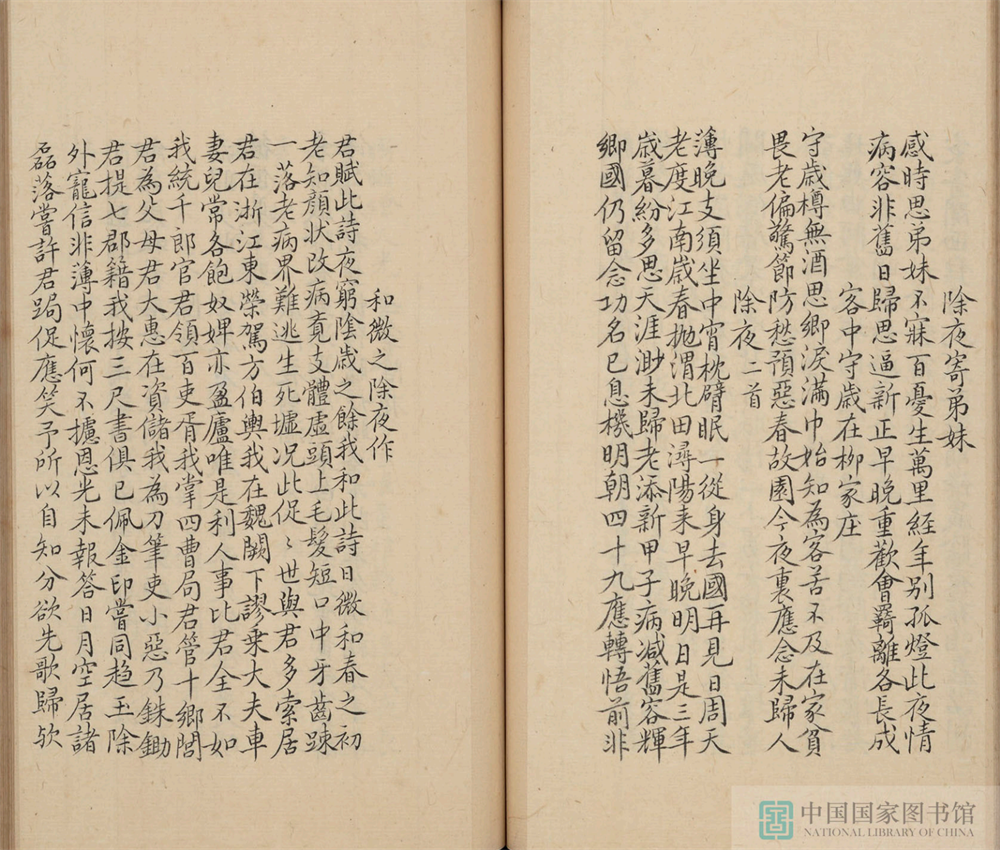 除夜寄弟妹
感時思弟妹不寐百憂生萬里經年别孤燈此夜情
病容非舊日歸思逼新正早晚重歡會羇離各長成
客中守歳在柳家庄
守歳樽無酒思鄉淚滿巾始知為客苦不及在家貧
畏老偏驚節防愁預惡春故園今夜裏應念未歸人
除夜二首
薄晚支頤坐中宵枕臂眠一從身去國再見日周天
老度江南歳春抛渭北田潯陽来早晚明日是三年
歳暮紛多思天涯渺未歸老添新甲子病减舊容輝
鄉國仍留念功名已息機明朝四十九應轉悟前非
和微之除夜作
君賦此詩夜窮陰歳之餘我和此詩日微和春之初
老知顔狀改病覓支體虛頭上毛髮短口中牙齒踈
一落老病界難逃生死墟况此促〻世與君多索居
君在浙江東榮駕方伯輿我在魏闕下謬乗大夫車
妻兒常各飽奴婢亦盈廬唯是利人事比君全不如
我統千郎官君領百吏胥我掌四曹局君管十鄉閭
君為父母君大惠在資儲我為刀筆吏小惡乃銖鋤
君提七郡籍我按三尺書俱已佩金印嘗同趍玉除
外寵信非薄中懷何不攄恩光未報答日月空居諸
磊落嘗許君跼促應笑予所以自知分欲先歌歸欤
中国国家图书馆
NATIONAL LIBRARY OF CHINA